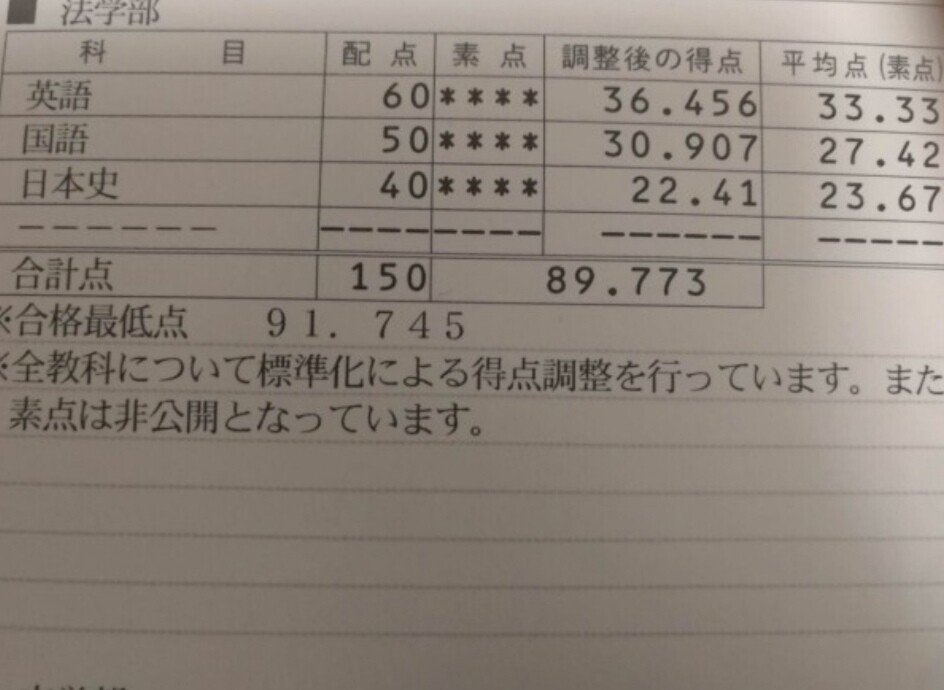 ■ 法学部
科 目 配 点 素 点 調整後の得点 平均点(素点)
英語 60 **** 36.456 33.33
国語 50 **** 30.907 27.42
日本史 40 **** 22.41 23.67
------ ---- ---- ------ -----
合計点 150 89.773
※合格最低点 91.745
※全教科について標準化による得点調整を行っています。また
素点は非公開となっています。